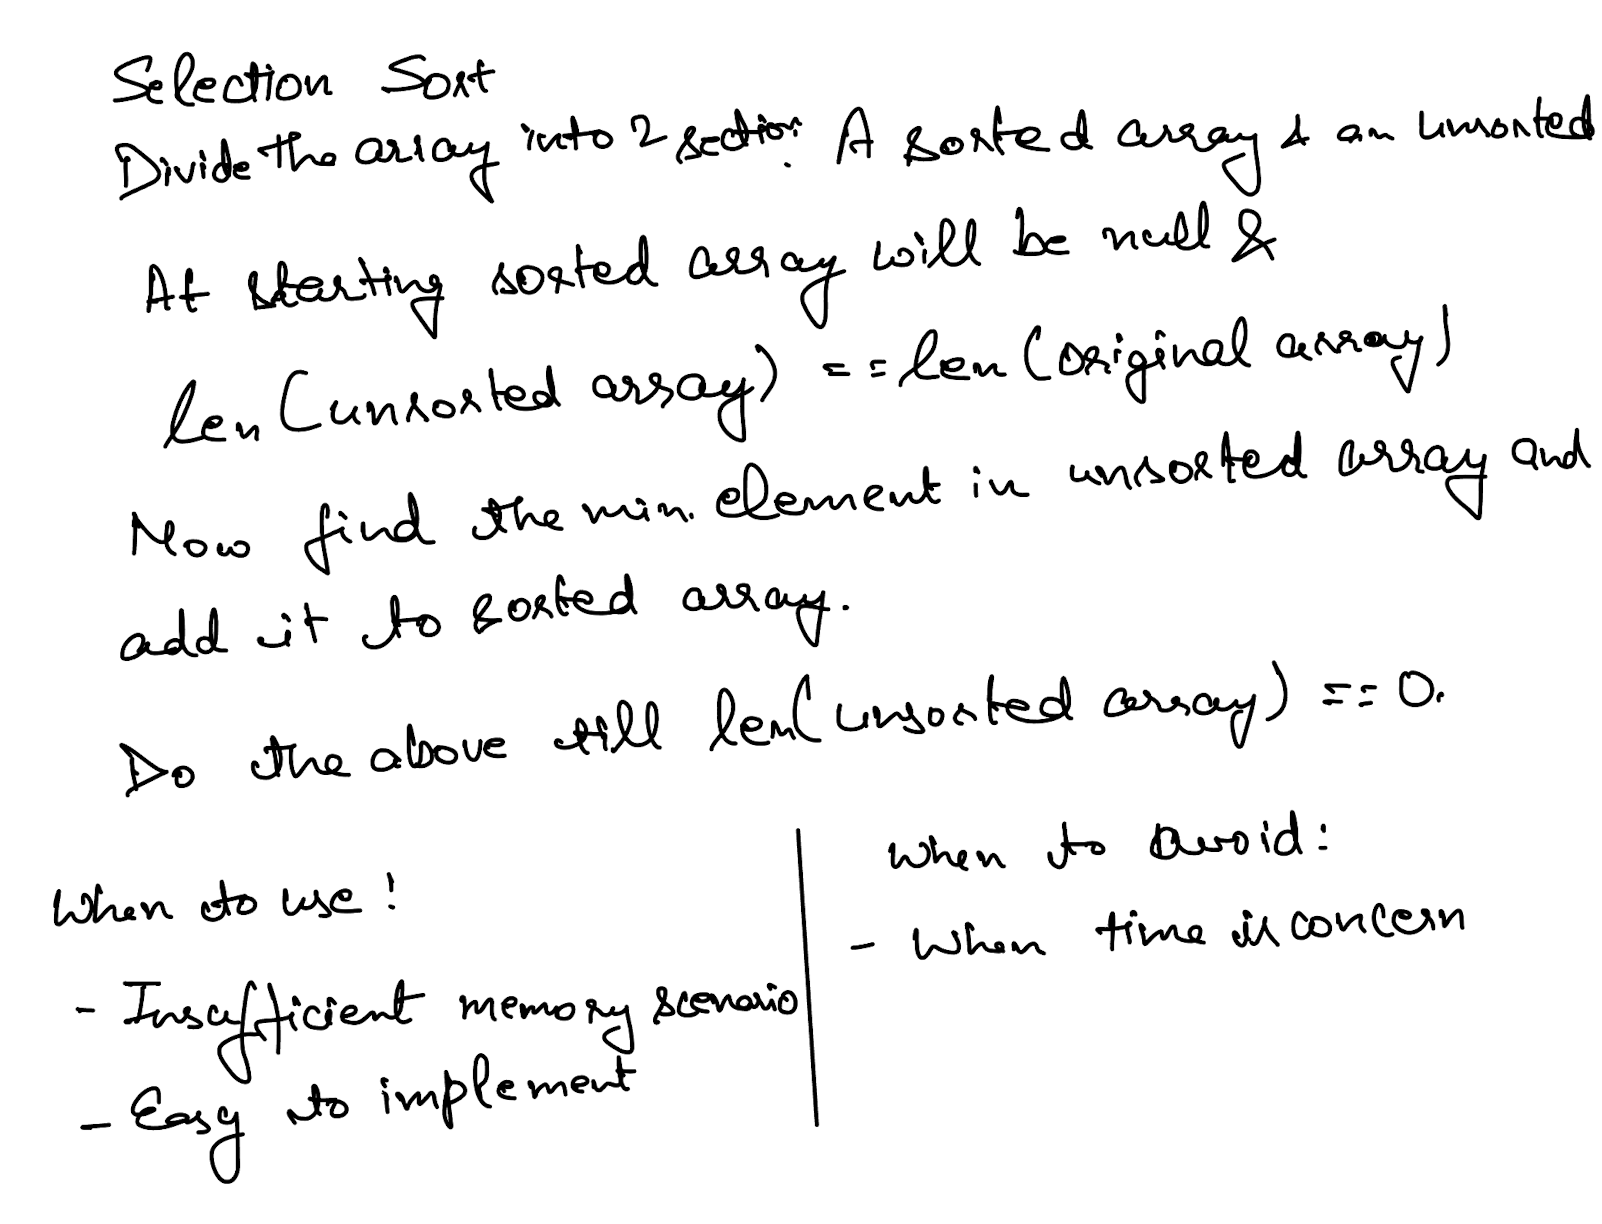 Selection Sort
Divide the array into 2 section. A sorted array & an unsorted
At starting sorted array will be null &
len (unsorted array) == len (original array)
Now find the min. element in unsorted array and
add it to sorted array.
Do the above till len(unsorted array) == 0.
When to use :
- Insufficient memory scenario
- Easy to implement
When to avoid :
- When time is concern